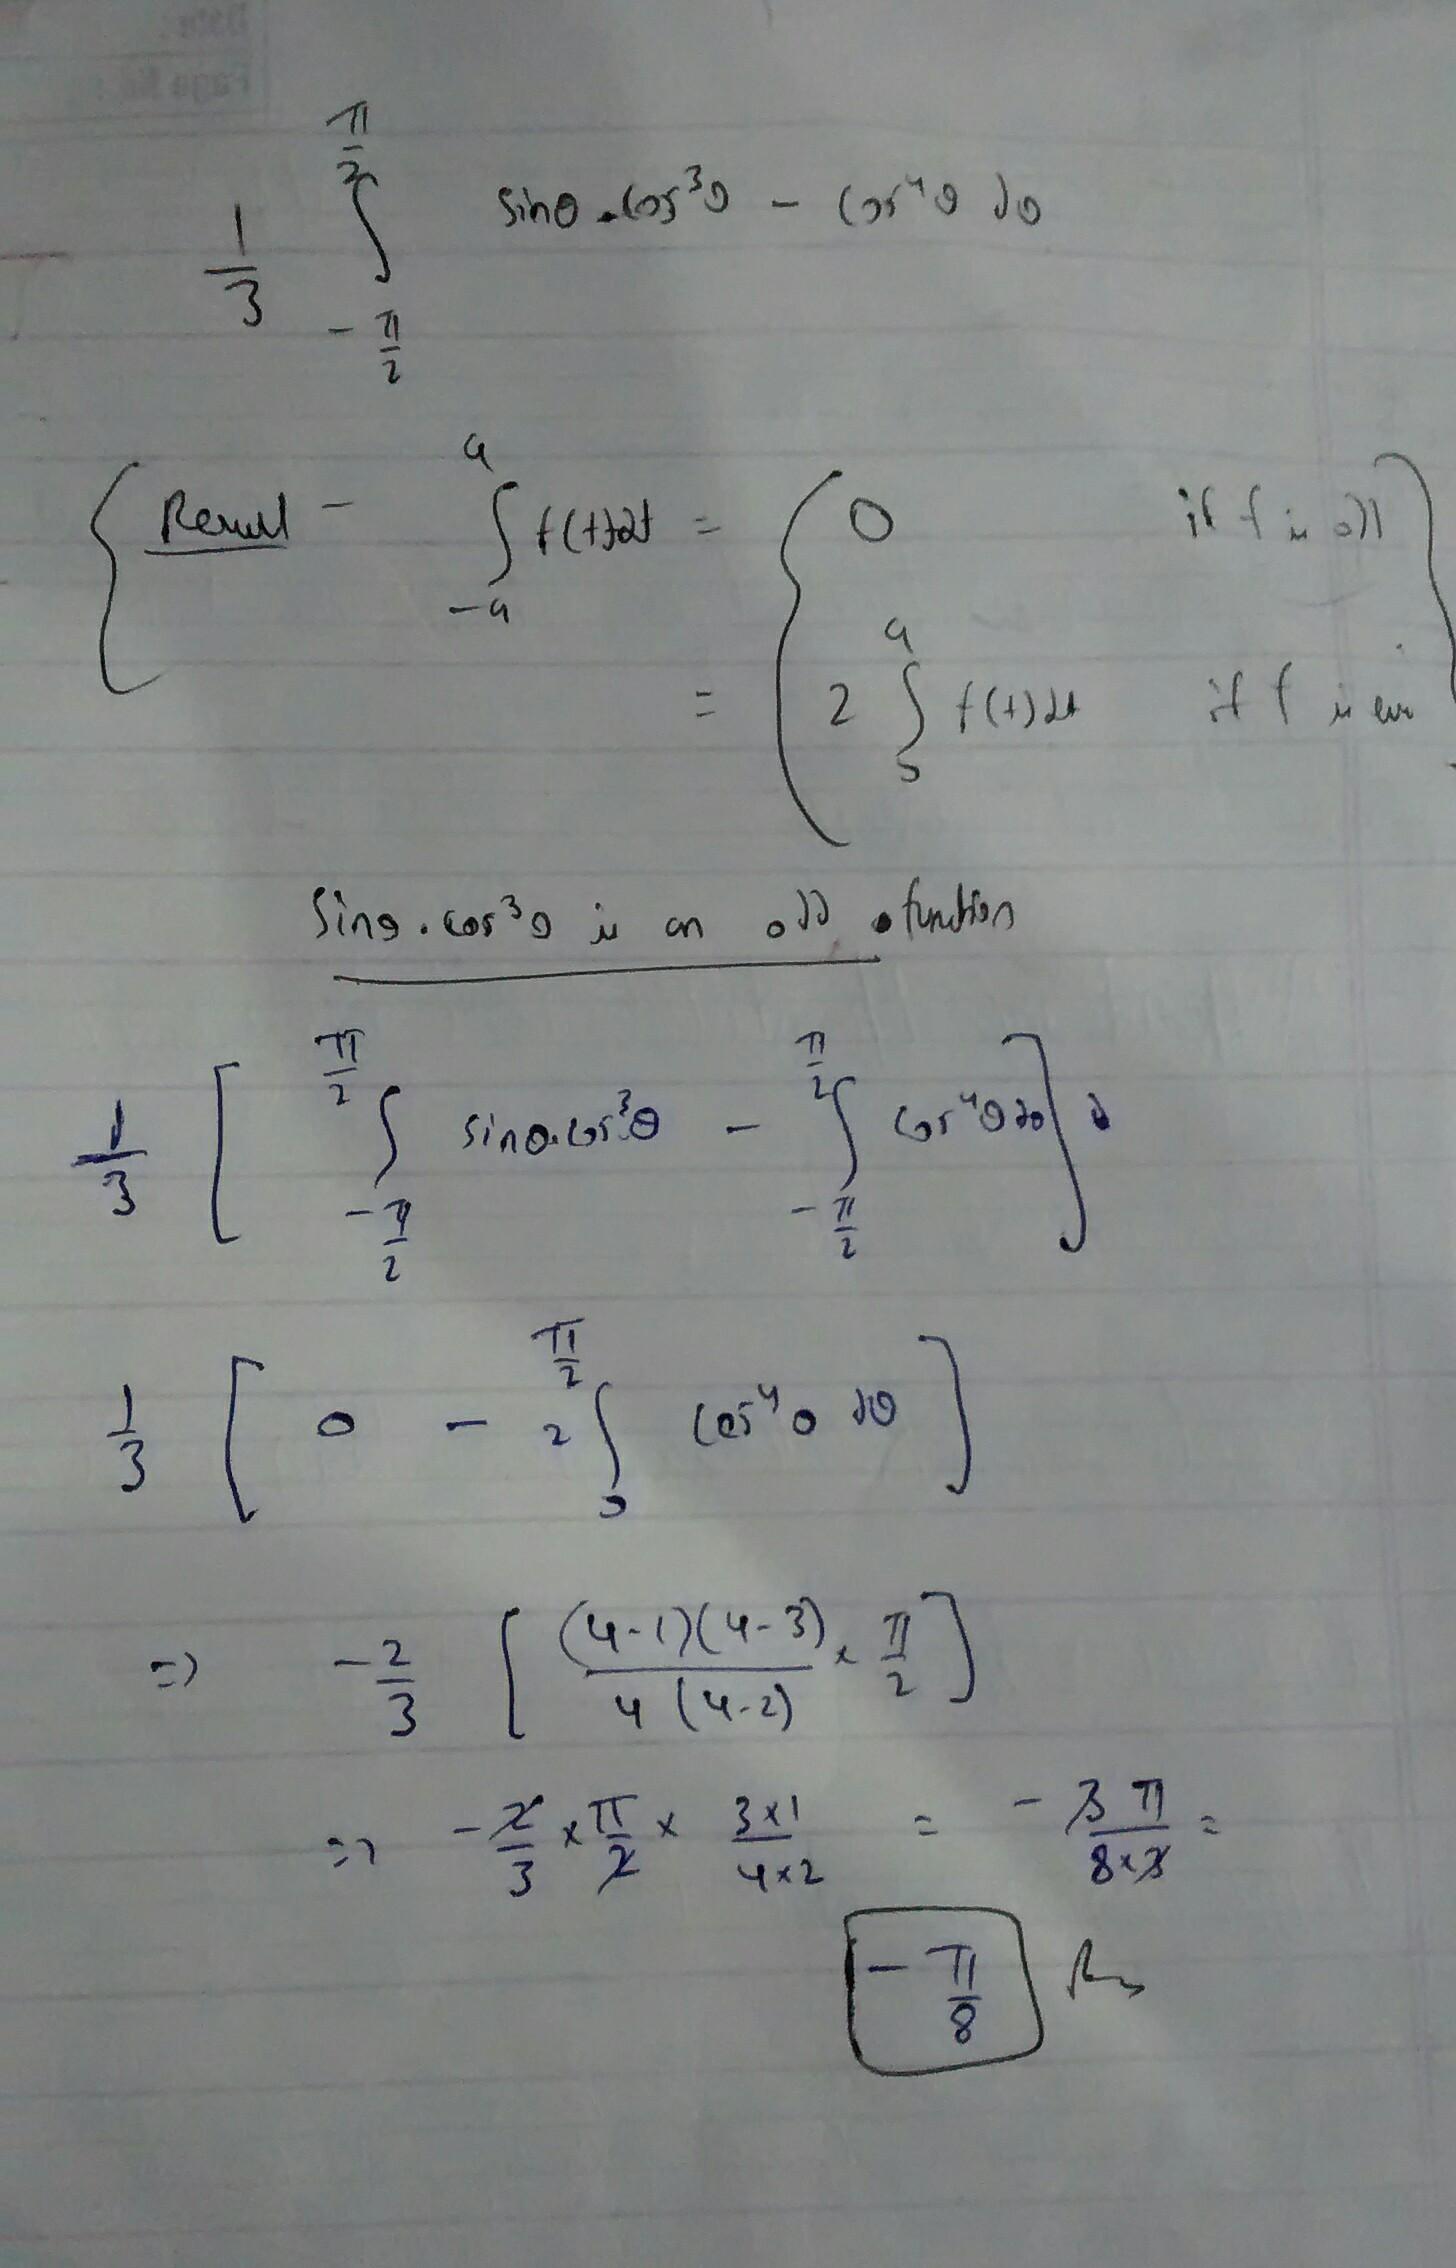 Date :
Page No :
1/3 ∫_{-π/2}^{π/2} sinθ.cos³θ - cos⁴θ dθ
{ Result - ∫_{-a}^{a} f(t)dt = { 0 if f is odd
= 2 ∫_{0}^{a} f(t)dt if f is even }
Sinθ.cos³θ is an odd function
1/3 [ ∫_{-π/2}^{π/2} sinθ.cos³θ - ∫_{-π/2}^{π/2} cos⁴θ dθ ]
1/3 [ 0 - 2 ∫_{0}^{π/2} cos⁴θ dθ ]
=> -2/3 [ (4-1)(4-3)/4(4-2) × π/2 ]
=> -2/3 × π/2 × 3×1/4×2 = -3π/8×3 =
-π/8 Ans